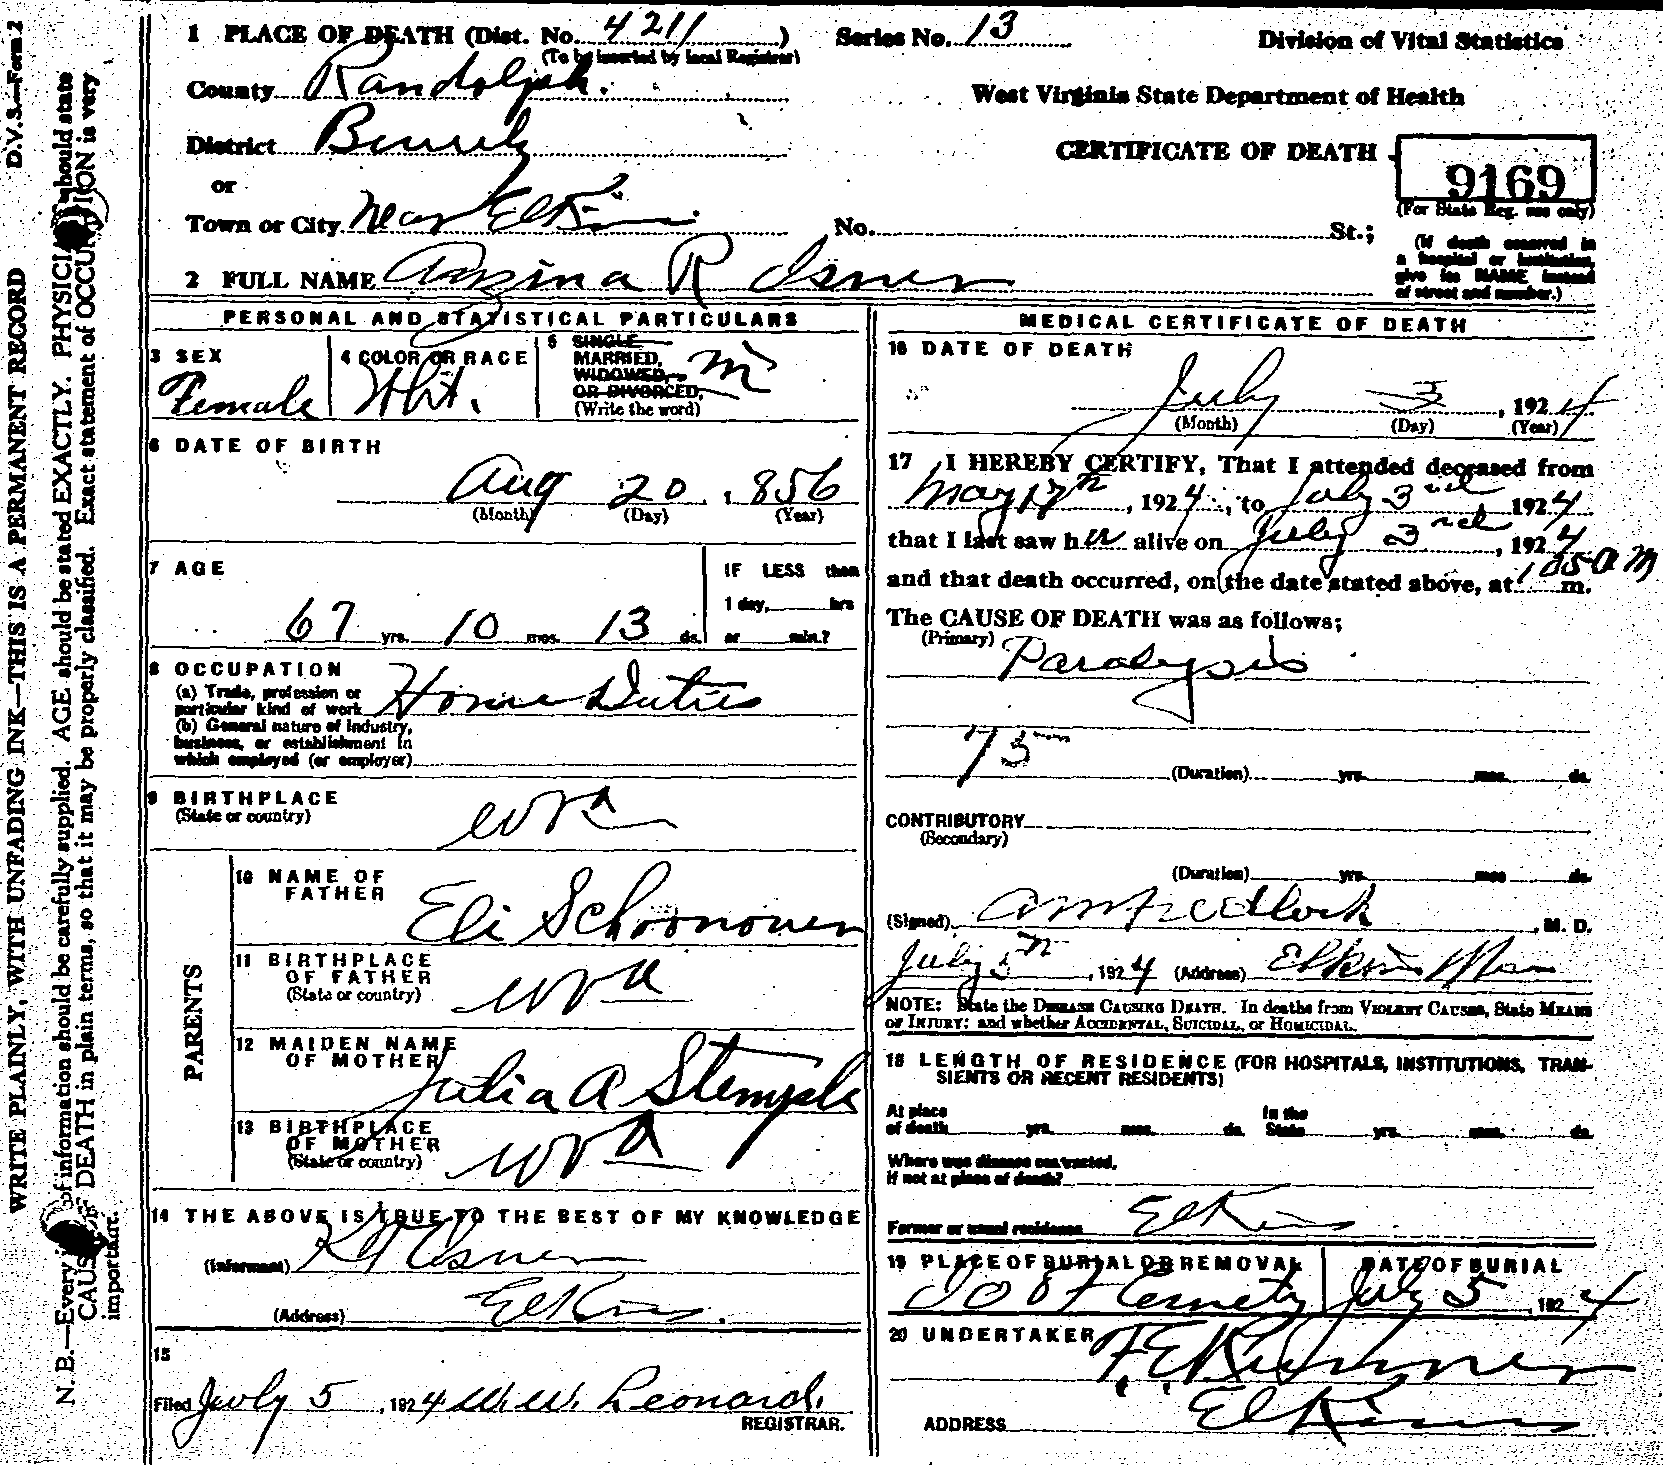 D.V.S.—Form 2
WRITE PLAINLY, WITH UNFADING INK—THIS IS A PERMANENT RECORD
N. B.—Every of information should be carefully supplied. AGE should be stated EXACTLY. PHYSICIA should state
CAUS OF DEATH in plain terms, so that it may be properly classified. Exact statement of OCCUPATION is very
important.
1 PLACE OF DEATH (Dist. No. 4211) Series No. 13
(To be inserted by local Registrar)
Division of Vital Statistics
County Randolph.
West Virginia State Department of Health
District
CERTIFICATE OF DEATH
9169
(For State Reg. use only)
or
Town or City Near Elkins No. St.;
(If death occurred in
a hospital or institution,
give its NAME instead
of street and number.)
2 FULL NAME R Isner
PERSONAL AND STATISTICAL PARTICULARS
3 SEX
Female
4 COLOR OR RACE
Wht.
5 SINGLE,
MARRIED, m
WIDOWED,
OR DIVORCED,
(Write the word)
6 DATE OF BIRTH
Aug 20, 1856
(Month) (Day) (Year)
7 AGE
67 yrs. 10 mos. 13 ds.
IF LESS than
1 day, hrs
or min.?
8 OCCUPATION
(a) Trade, profession or
particular kind of work Home Duties
(b) General nature of industry,
business, or establishment in
which employed (or employer)
9 BIRTHPLACE
(State or country) W Va
PARENTS
10 NAME OF
FATHER
Eli Schoonover
11 BIRTHPLACE
OF FATHER
(State or country) W Va
12 MAIDEN NAME
OF MOTHER
Julia A Stemple
13 BIRTHPLACE
OF MOTHER
(State or country) W Va
14 THE ABOVE IS TRUE TO THE BEST OF MY KNOWLEDGE
(Informant) Isner
(Address) Elkins.
15
Filed July 5, 1924 W. W. Leonard.
REGISTRAR.
MEDICAL CERTIFICATE OF DEATH
16 DATE OF DEATH
July 3, 1924
(Month) (Day) (Year)
17 I HEREBY CERTIFY, That I attended deceased from
May 17th, 1924, to July 3rd 1924
that I last saw her alive on July 3rd, 1924
and that death occurred, on the date stated above, at 1 05 a m m.
The CAUSE OF DEATH was as follows;
(Primary) Paralysis
75
(Duration) yrs. mos. ds.
CONTRIBUTORY
(Secondary)
(Duration) yrs. mos. ds.
(Signed) A M Fredlock, M. D.
July 5th, 1924 (Address) Elkins
NOTE: State the DISEASE CAUSING DEATH. In deaths from VIOLENT CAUSES, State MEANS
OF INJURY; and whether ACCIDENTAL, SUICIDAL, or HOMICIDAL.
18 LENGTH OF RESIDENCE (FOR HOSPITALS, INSTITUTIONS, TRAN-
SIENTS OR RECENT RESIDENTS)
At place
of death yrs. mos. ds.
In the
State yrs. mos. ds.
Where was disease contracted,
if not at place of death?
Former or usual residence Elkins
19 PLACE OF BURIAL OR REMOVAL
I O O F Cemetery
DATE OF BURIAL
July 5, 1924
20 UNDERTAKER
ADDRESS Elkins